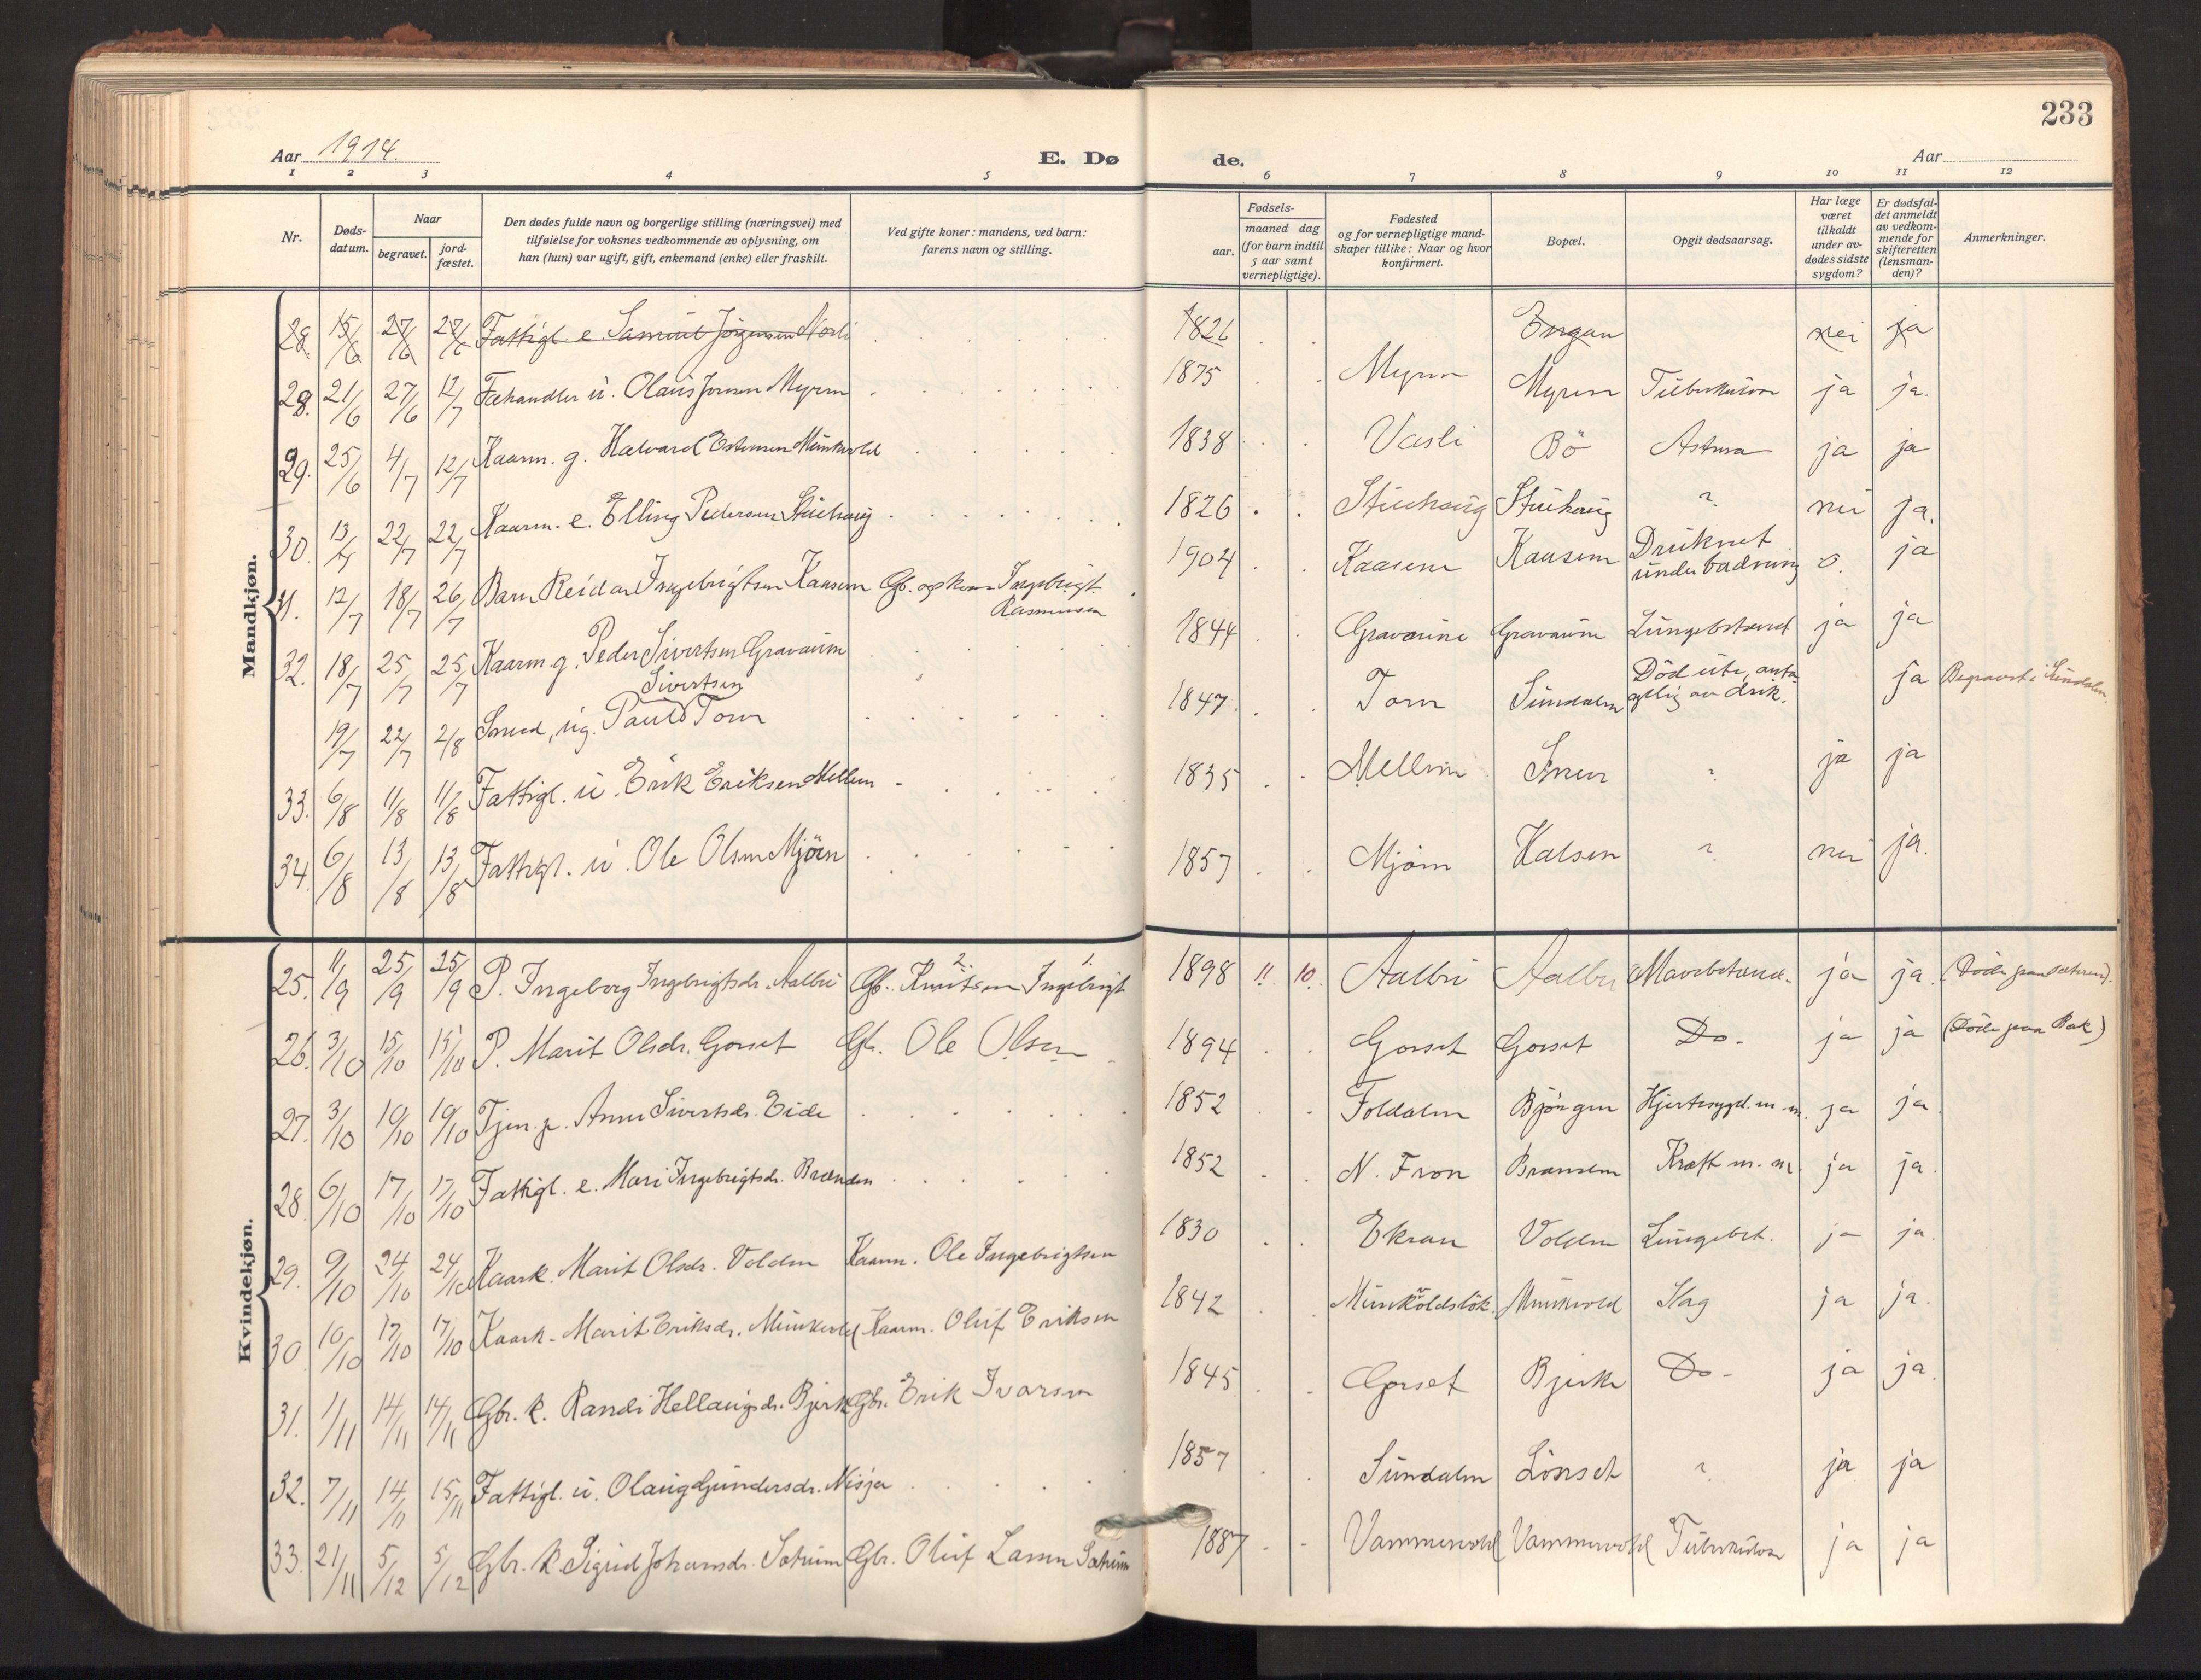 233
Aar 1914.
E. Dø
de.
Aar
1 2 3 4 5 6 7 8 9 10 11 12
Nr.
Døds-
datum.
Naar
begravet.
jord-
fæstet.
Den dødes fulde navn og borgerlige stilling (næringsvei) med
tilføielse for voksnes vedkommende av oplysning, om
han (hun) var ugift, gift, enkemand (enke) eller fraskilt.
Ved gifte koner: mandens, ved barn:
farens navn og stilling.
Fødsels-
aar.
maaned dag
(for barn indtil
5 aar samt
vernepligtige).
Fødested
og for vernepligtige mand-
skaper tillike: Naar og hvor
konfirmert.
Bopæl.
Opgit dødsaarsag.
Har læge
været
tilkaldt
under av-
dødes sidste
sygdom?
Er dødsfal-
det anmeldt
av vedkom-
mende for
skifteretten
(lensman-
den)?
Anmerkninger.
Mandkjøn.
28. 15/6 27/6 27/6 Fattigl. e. Samuel Jørgensen Norli 1826 Engan nei ja
28. 21/6 27/6 12/7 Fæhandler ü. Olaus Jonsen Myren 1875 Myren Myren Tüberkulose ja ja.
29. 25/6 4/7 12/7 Kaarm. g. Halvard Estensen Münkvold 1838 Vasli Bö Astma ja ja
30. 13/7 22/7 22/7 Kaarm. e. Elling Pedersen Stüehaüg 1826 Stüehaüg Stüehaüg ? nei ja.
31. 12/7 18/7 26/7 Barn Reidar Ingebrigtsen Kaasen Gb. og Ingebrigt Rasmussen 1904 Kaasen Kaasen Drüknet ünder badning o. ja
32. 18/7 25/7 25/7 Kaarm. g. Peder Sivertsen Gravaüne 1844 Gravaüne Gravaüne Lüngebetænd ja ja
19/7 22/7 2/8 Smed, üg. Paul Sivertsen Torn 1847. Torn Sündalen Död üte, anta-
gelig av drik. ja Begravet i Sündalen.
33. 6/8 11/8 11/8 Fattigl. ü. Erik Eriksen Mellem 1835 Mellem ? ja ja
34. 6/8 13/8 13/8 Fattigl. ü. Ole Olsen Mjöen 1857 Mjöen Halsen ? nei ja.
Kvindekjøn.
25. 11/9 25/9 25/9 P. Ingeborg Ingebrigtsdr. Aalbü Gb. Knütsen Ingebrigt 1898 11. 10. Aalbü Aalbü Mavebetænd. ja ja (Döde paa sæteren).
26. 3/10 15/10 15/10 P. Marit Olsdr. Gorset Gb. Ole Olsen 1894 Gorset Gorset Do. ja ja (Döde paa Bak)
27. 3/10 10/10 10/10 Tjen. p. Anne Sivertsdr. Eide 1852 Foldalen Bjöngen Hjertesygd. m. m. ja ja.
28. 6/10 17/10 17/10 Fattigl. e. Mari Ingebrigtsdr. Brænden 1852 N. Fron Brænden Kræft m. m. ja ja.
29. 9/10 24/10 24/10 Kaark. Marit Olsdr. Volden Kaarm. Ole Ingebrigtsen 1830 Ekran Volden Lüngebet. ja ja.
30. 10/10 17/10 17/10 Kaark. Marit Eriksdr. Münkvold Kaarm. Olüf Eriksen 1842 Münkvoldslök. Münkvold Slag ja ja.
31. 1/11 14/11 14/11 Gbr. k. Randi Hellaügsdr. Bjerke Gbr. Erik Ivarsen 1845 Gorset Bjerke Do. ja ja.
32. 7/11 14/11 15/11 Fattigl. ü. Olaüg Gündersdr. Nisja 1857 Sündalen Lönset ? ja ja
33. 21/11 5/12 5/12 Gbr. k. Sigrid Johansdr. Satrüm Gbr. Olüf Larsen Satrüm 1887 Vammervold Vammervold Tüberkülose ja ja